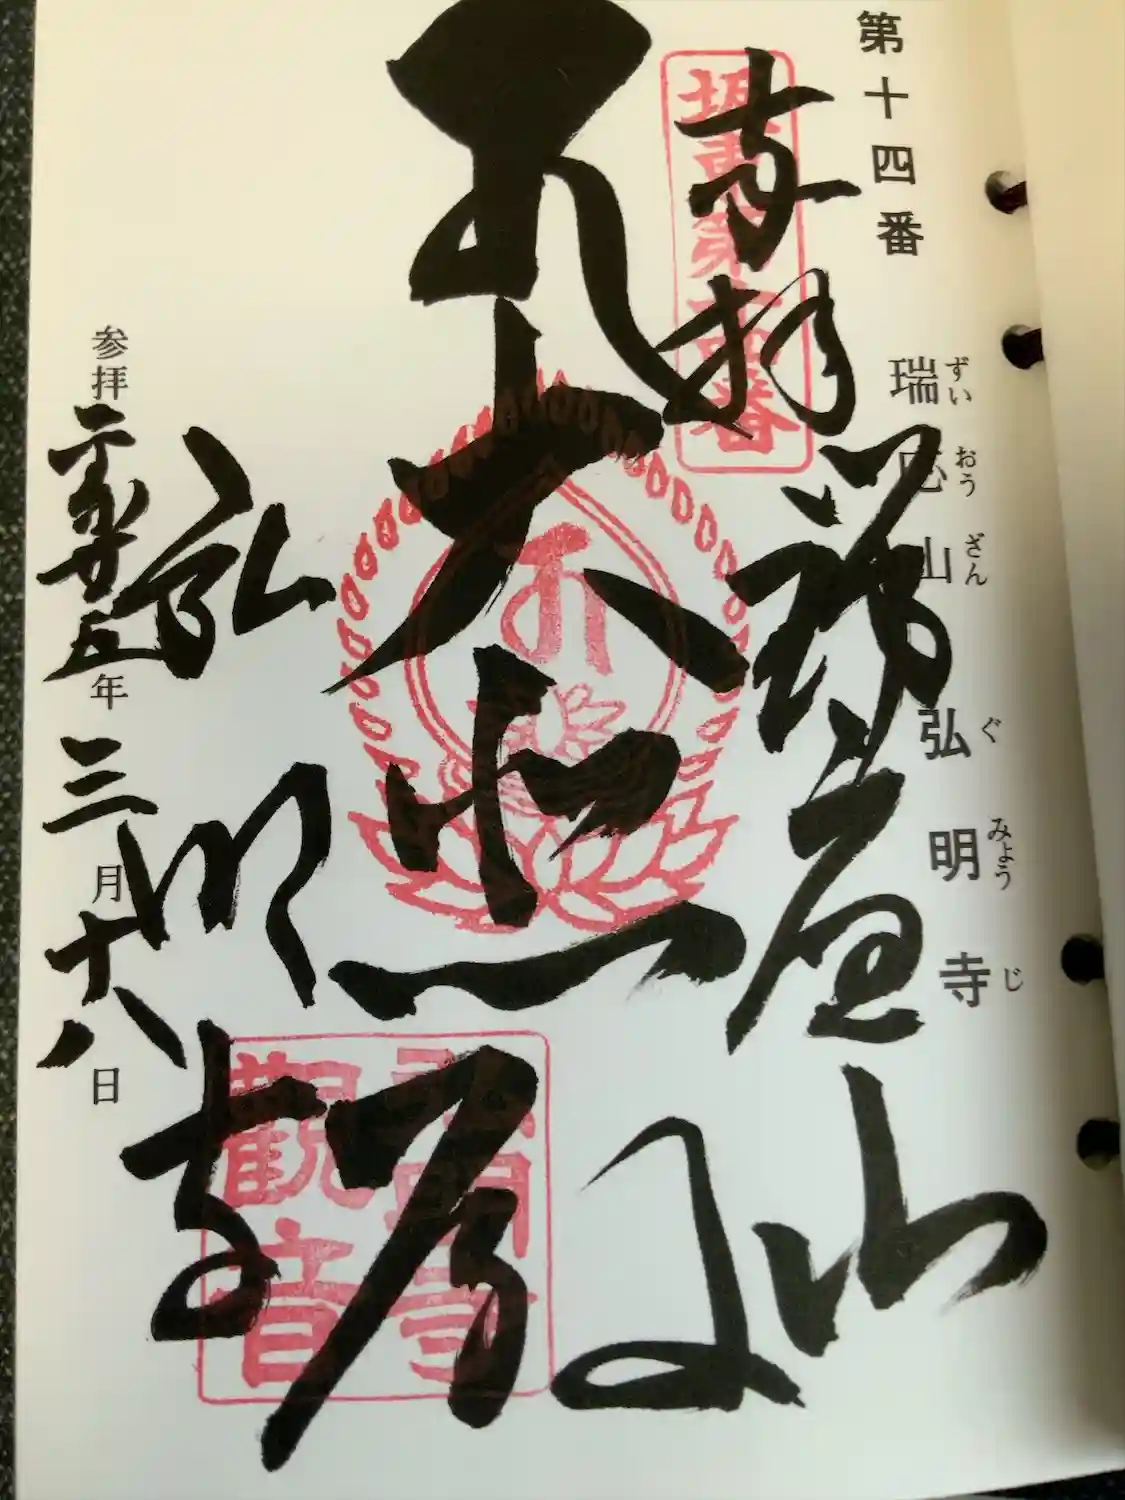 第十四番
瑞応山 弘明寺
ずい おう ざん ぐ みょう じ
奉拝
瑞應山
坂東第十四番
大悲殿
弘明寺
弘明寺
觀音
参拝 年 三月十八日